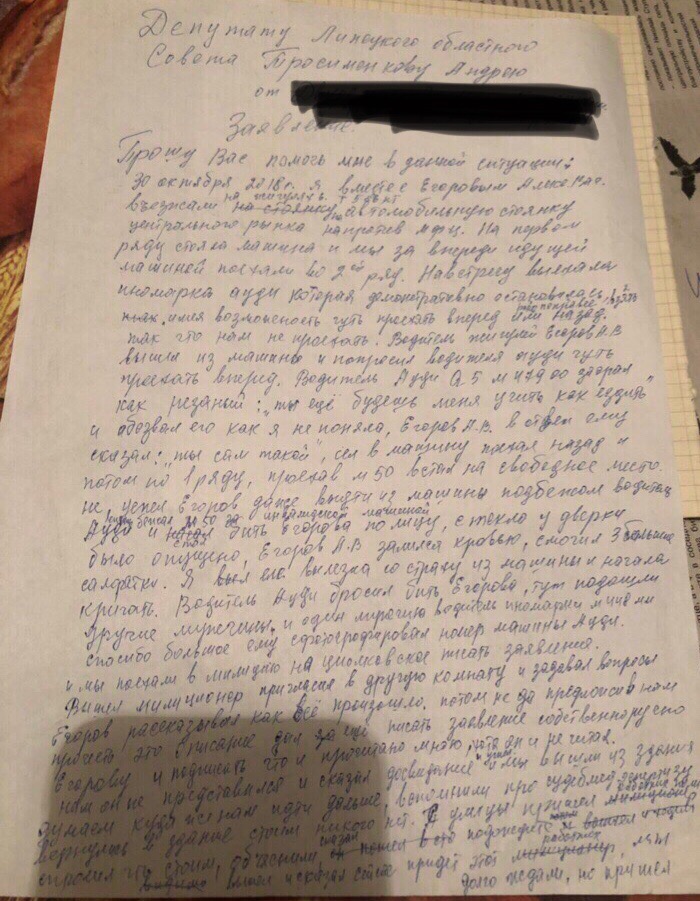 Депутату Липецкого областного
Совета Тросименкову Андрею
от
Заявление.
Прошу Вас помочь мне в данной ситуации:
30 октября 2018г. я вместе с Егоровым Алекс.
въезжали на жигулях на автомобильную стоянку
центрального рынка напротив мфц. На первом
ряду стояла машина и мы за впереди идущей
машиной поехали во 2ой ряд. Навстречу выехала
иномарка ауди которая демонстративно остановилась,
имея возможность чуть проехать вперед или назад.
так что нам не проехать. Водитель жигулей Егоров А.В
вышел из машины и попросил водителя ауди чуть
проехать вперед. Водитель Ауди Q5 м 479 оо заорал
как резаный: "ты ещё будешь меня учить как ездить"
и обозвал его как я не поняла, Егоров А.В. в ответ ему
сказал: "ты сам такой", сел в машину поехал назад и
потом по 1 ряду, проехав м 50 встал на свободное место.
не успел Егоров даже выйти из машины подбежал водитель
Ауди и стал бить Егорова по лицу, стекло у дверки
было опущено, Егоров А.В залился кровью, смочил 3 большие
салфетки. Я вылезла со страху из машины и начала
кричать. Водитель Ауди бросил бить Егорова, тут подошли
другие мужчины, и один мужчина водитель иномарки
спасибо большое ему сфотографировал номер машины Ауди.
и мы поехали в милицию на циолковское писать заявление.
Вышел милиционер пригласил в другую комнату и задавал вопросы
Егоров рассказывал как всё произошло. потом не да предложив нам
прочесть это описание дал писать заявление собственноручно
Егорову и подписать что и прочитано мною, хотя он и не читал.
нам он не представился и сказал досвидание и мы вышли из здания
думаем куда же нам идти дальше, вспомнили про судебмед экспертизу
вернулись в здание стоим никого нет. С улицы пришел
спросил что стоим, объяснили, сказал подождите
вышел и сказал сейчас придет этот работник, мы
долго ждали, но пришел